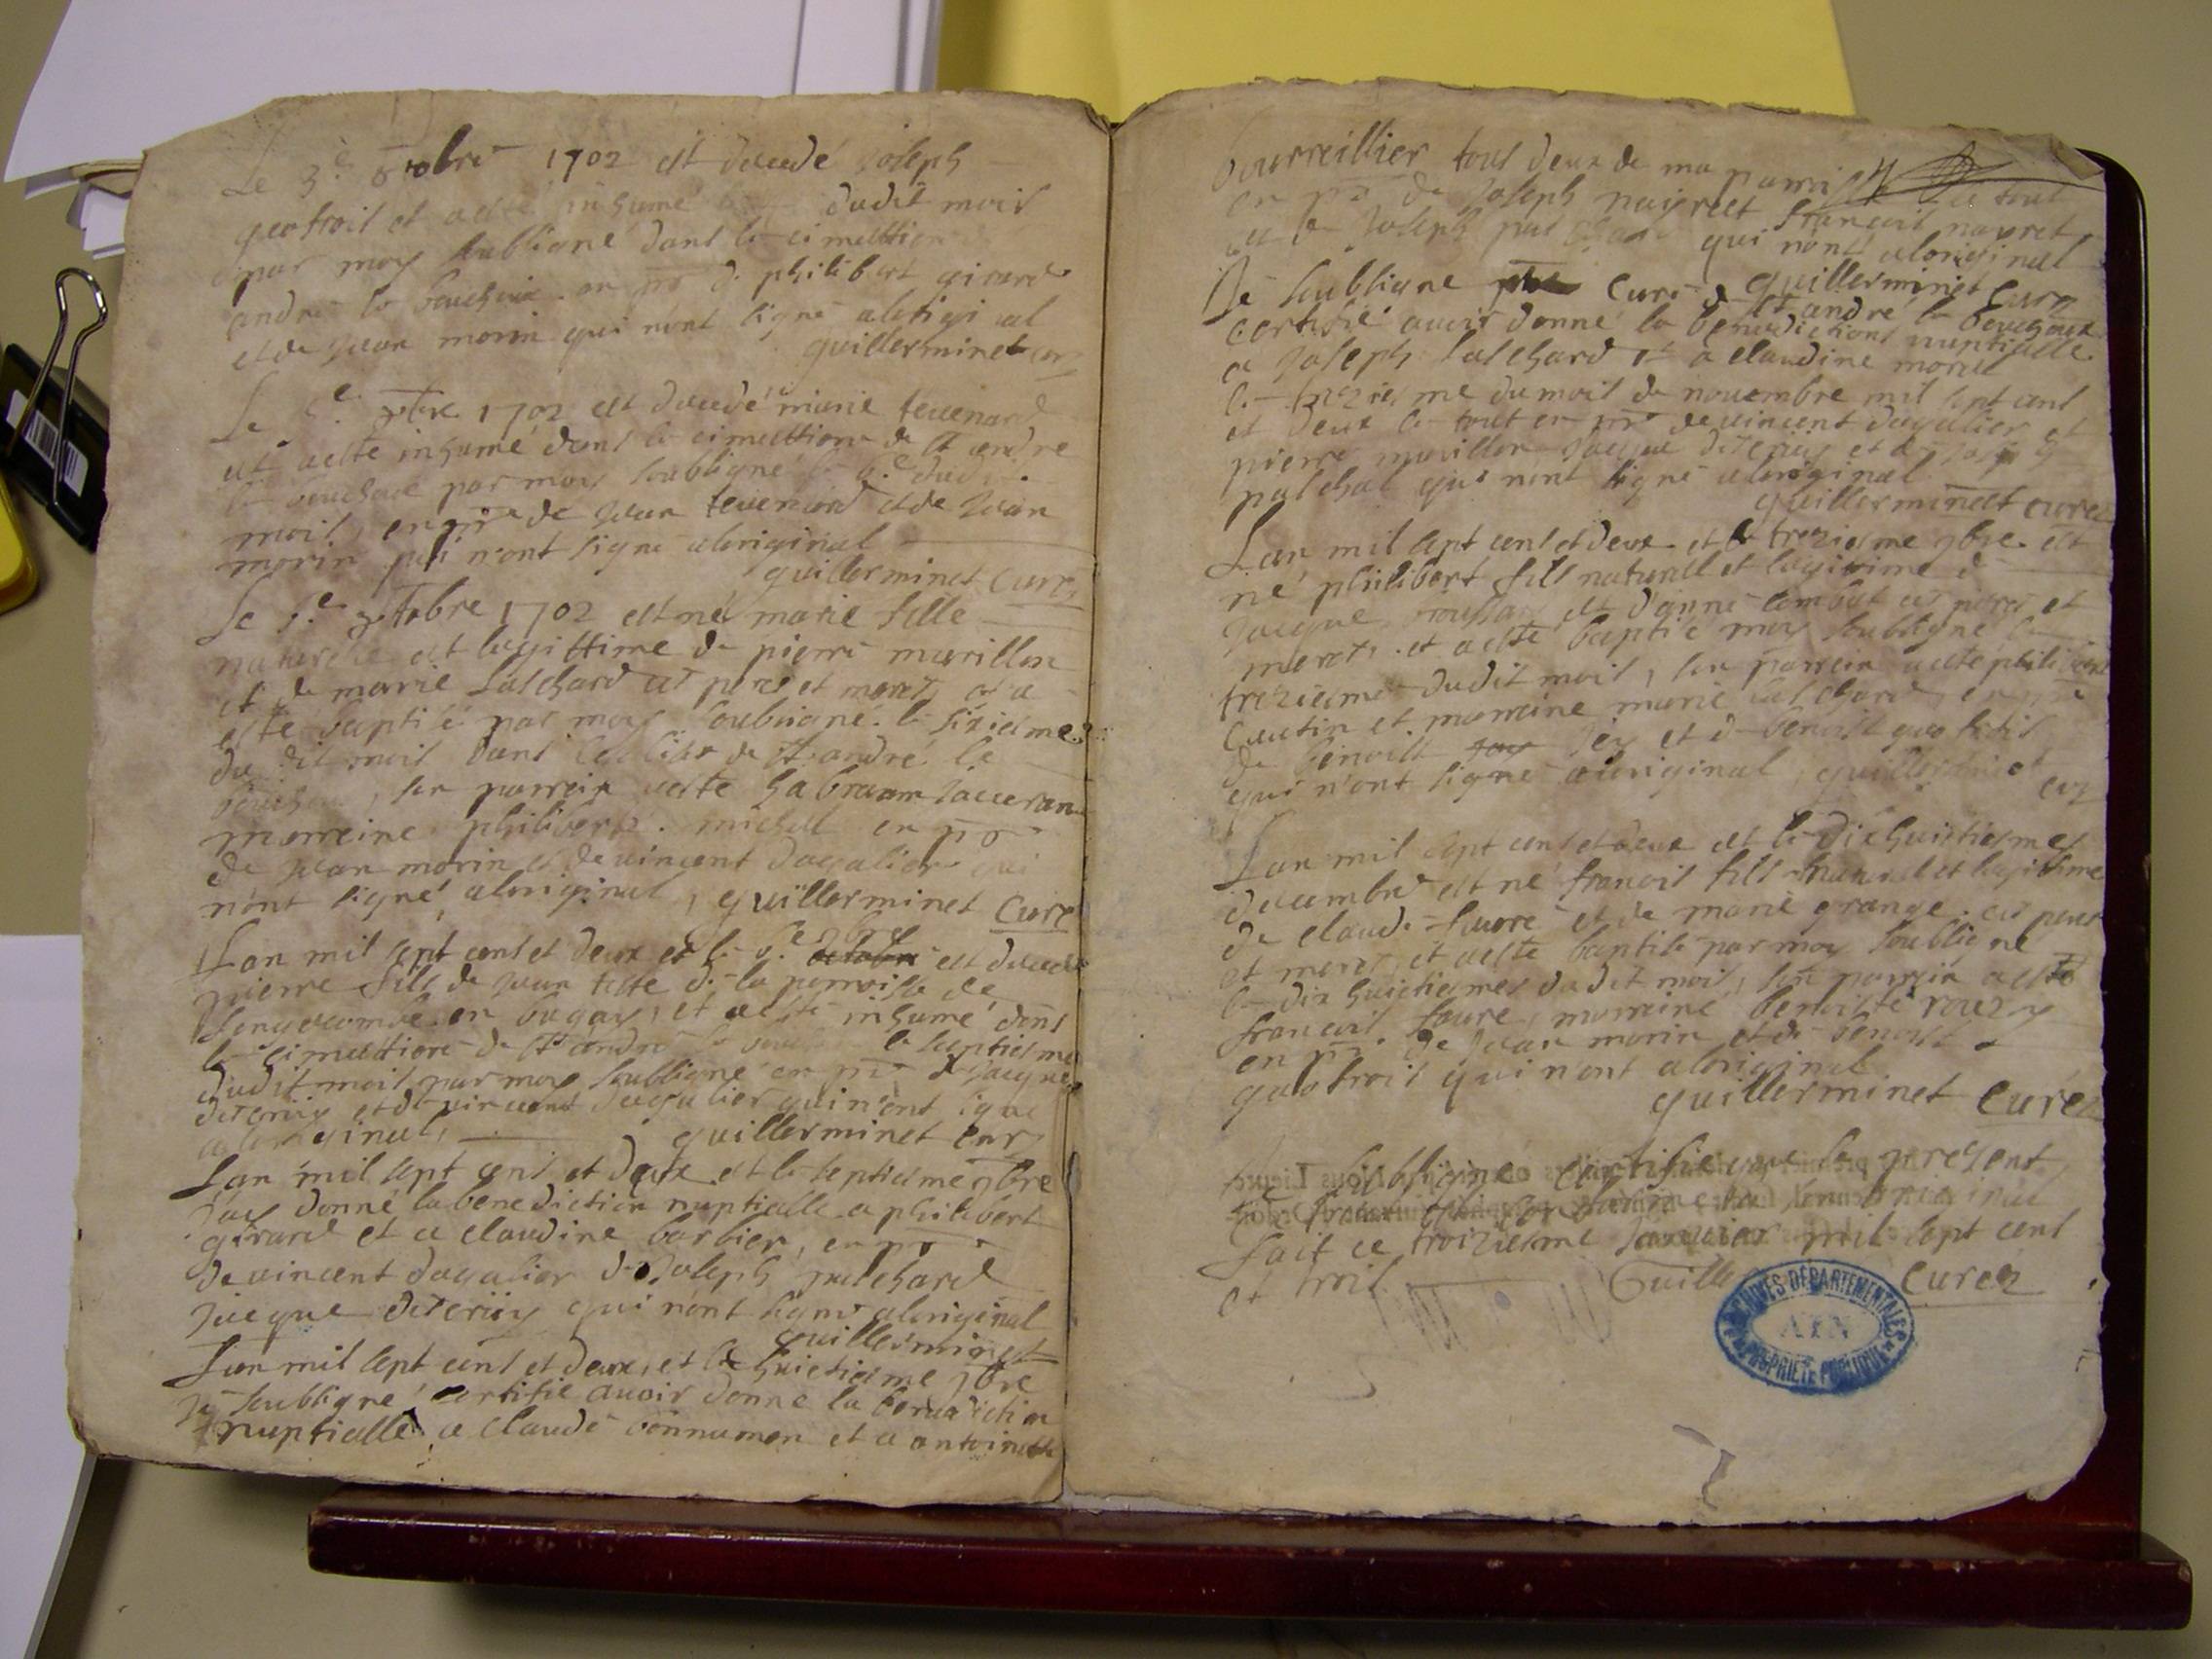 Le 3e octobre 1702 est decedé Joseph
geofroit et a esté inhumé le dudit mois
par moy soubsigné dans le cimettiere
andré le bouchoux en pnce de philibert girard
et de Jean morin qui nont signé aloriginal
guillerminet curé
Le 5e 8bre 1702 est decedé marie tevenard
et a esté inhumé dans le cimettiere de St andre
le bouchoux par moy soubsigné le 6e dudit
mois, en pnce de Jean tevenard et de Jean
morin qui n'ont signé aloriginal
guillerminet curé
Le 5e octobre 1702 est né marie fille
naturelle et legittime de pierre marillon
et de marie salchard ses peres et meres et a
esté baptisé par moy soubsigné le sixiesme
du dit mois dans leglise de St andré le
bouchou, son parrein a esté habraam Jacceran
marreine philiberte michel en pnce
de Jean morin et de vincent dagalier qui
n'ont signé, aloriginal, guillerminet curé
Lan mil sept cens et deux et le 6e 9bre octobre est decedé
pierre fils de Jean teste de la parroisse de
longecombe en bugay, et a esté inhumé dans
le cimettiere de St andré le bouchou le septiesme
dudit mois par moy soubsigné en pnce de Jacque
deteriiy et de vincent dagalier qui n'ont signé
aloriginal, guillerminet cur
Lan mil sept cens et deux et le septiesme 9bre
Jay donné la benediction nuptialle a philibert
girard et a claudine barbier, en pnce
de vincent dagalier de Joseph pulchard
Jacque deteriiy qui nont signé aloriginal
guillerminet
Lan mil sept cens et deux, et le huictiesme 9bre
Je soubsigné certifie avoir donné la benediction
nuptialle a claude vennamon et a antoinette
bourreillier tous deux de ma parroisse le tout
en pnce de Joseph nayret francois nayret
et de Joseph pulchard qui n'ont aloriginal
guillerminet curé
Je soubsigne curé de St andré le bouchoux
certifie avoir donné la benediction nuptialle
a Joseph salchard et a claudine morel
le treziesme du mois de novembre mil sept cens
et deux le tout en pnce de vincent dagalier et
pierre marillon Jacque deteriiy et de Joseph
pulchal qui n'ont signé aloriginal
guillerminet curé
Lan mil sept cens et deux et le treziesme 9bre est
né philibert fils naturel et legitime de
Jacque roussay et d'anne combet ses peres et
meres, et a esté baptisé moy soubsigné le
treziesme dudit mois, son parrein a esté philibert
cautin et marreine marie salchard, en pnce
de benoist Jey et de benoist geofroit
qui n'ont signé aloriginal, guillerminet
cur
Lan mil sept cens et deux et le dixhuictiesme
decembre est né francois fils naturel et legitime
de claude faure et de marie grange ses peres
et meres et a esté baptisé par moy soubsigné
le dix huictiesme dudit mois, son parrein a esté
francois faure, marreine benoiste rouzy
en pnce de Jean morin et de benoist
geofroit qui n'ont aloriginal
guillerminet curé
Je soubsigné certifie que le present
fait ce troiziesme Janvier mil sept cens
et trois Guille curé
ARCHIVES DÉPARTEMENTALES
AIN
PROPRIÉTÉ PUBLIQUE